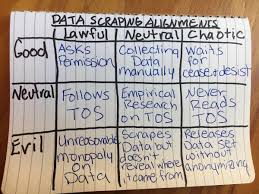 DATA SCRAPING ALIGNMENTS
Lawful Neutral Chaotic
Good
Asks
Permission
Collecting
Data
manually
Waits
for
cease+desist
Neutral
Follows
TOS
Empirical
Research
on TOS
Never
Reads
TOS
Evil
Unreasonable
monopoly
on
Data
Scrapes
Data but
doesn't
reveal where
it came from
Releases
Data Set
without
anonymizing